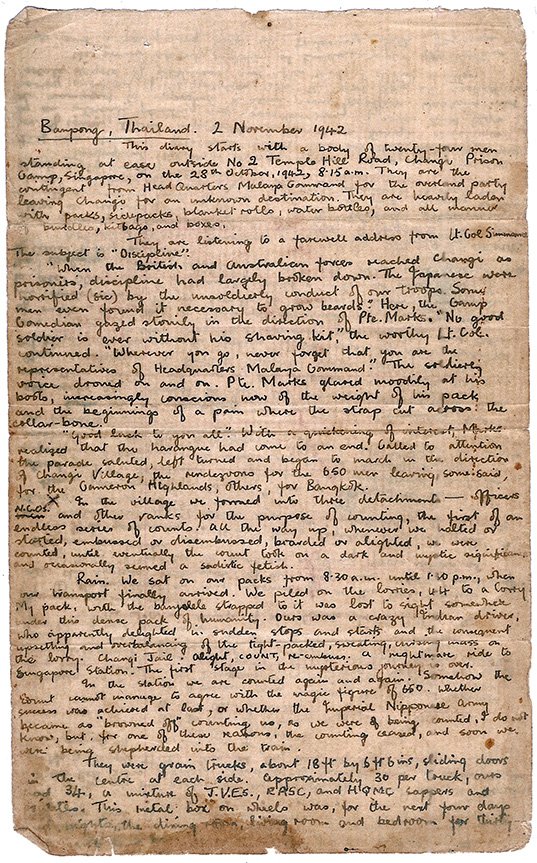 Banpong, Thailand. 2 November 1942
This diary starts with a body of twenty-four men
standing at ease outside No 2 Temple Hill Road, Changi Prison
Camp, Singapore, on the 28th October, 1942, 8.15 a.m. They are the
contingent from Head Quarters Malaya Command for the overland party
leaving Changi for an unknown destination. They are heavily laden
with packs, sidepacks, blanket rolls, water bottles, and all manner
bundles, kitbags, and boxes.
They are listening to a farewell address from Lt. Col Simmons
The subject is "Discipline".
"When the British and Australian forces reached Changi as
prisoners, discipline had largely broken down. The Japanese were
horrified (sic) by the unsoldierly conduct of our troops. Some
men even found it necessary to grow beards." Here, the Camp
Comedian gazed stonily in the direction of Pte. Marks. "No good
soldier is ever without his shaving kit" the worthy Lt. Col.
continued. "Wherever you go, never forget that you are the
representatives of Headquarters Malaya Command." The soldierly
voice droned on and on. Pte. Marks glared moodily at his
boots, increasingly conscious now of the weight of his pack
and the beginnings of a pain where the strap cut across the
collar-bone.
"Good luck to you all". With a quickening of interest, Marks
realized that the harangue had come to an end. Called to attention
the parade saluted, left turned and began to march in the direction
of Changi Village, the rendezvous for the 650 men leaving, some said
for the Cameron Highlands, others, for Bangkok.
In the village we formed into three detachments — officers
N.C.O.s. and other ranks for the purpose of counting, the first of an
endless series of counts. All the way up, whenever we halted or
started, embussed or disembussed, boarded or alighted, we were
counted, until eventually the count took on a dark and mystic significance
and occasionally seemed a sadistic fetish.
Rain. We sat on our packs from 8.30 a.m. until 1.30 p.m., when
our transport finally arrived. We piled on the lorries, 44 to a lorry
My pack, with the banjolele strapped to it was lost to sight somewhere
under this dense pack of humanity. Ours was a crazy Indian driver,
who apparently delighted in sudden stops and starts and the consequent
upsetting and overbalancing of the tight-packed, sweating, cursing mass on
the lorry. Changi Jail: alight, COUNT, re-embuss. Nightmare ride to
Singapore Station. The first stage in the mysterious journey is over.
In the station we are counted again and again. Somehow the
count cannot manage to agree with the magic figure of 650. Whether
success was achieved at last, or whether the Imperial Nipponese Army
became as "browned off" counting us, as we were of being counted, I do not
know, but for one of these reasons, the counting ceased, and soon we
were being shepherded into the train.
They were grain trucks, about 18ft by 6ft 6ins, sliding doors
in the centre at each side. Approximately 30 per truck, ours
had 34, a mixture of J.V.E's., RASC, and HQMC sappers and
This metal box on wheels was, for the next four days
nights, the dining room, living room and bedroom for thirty